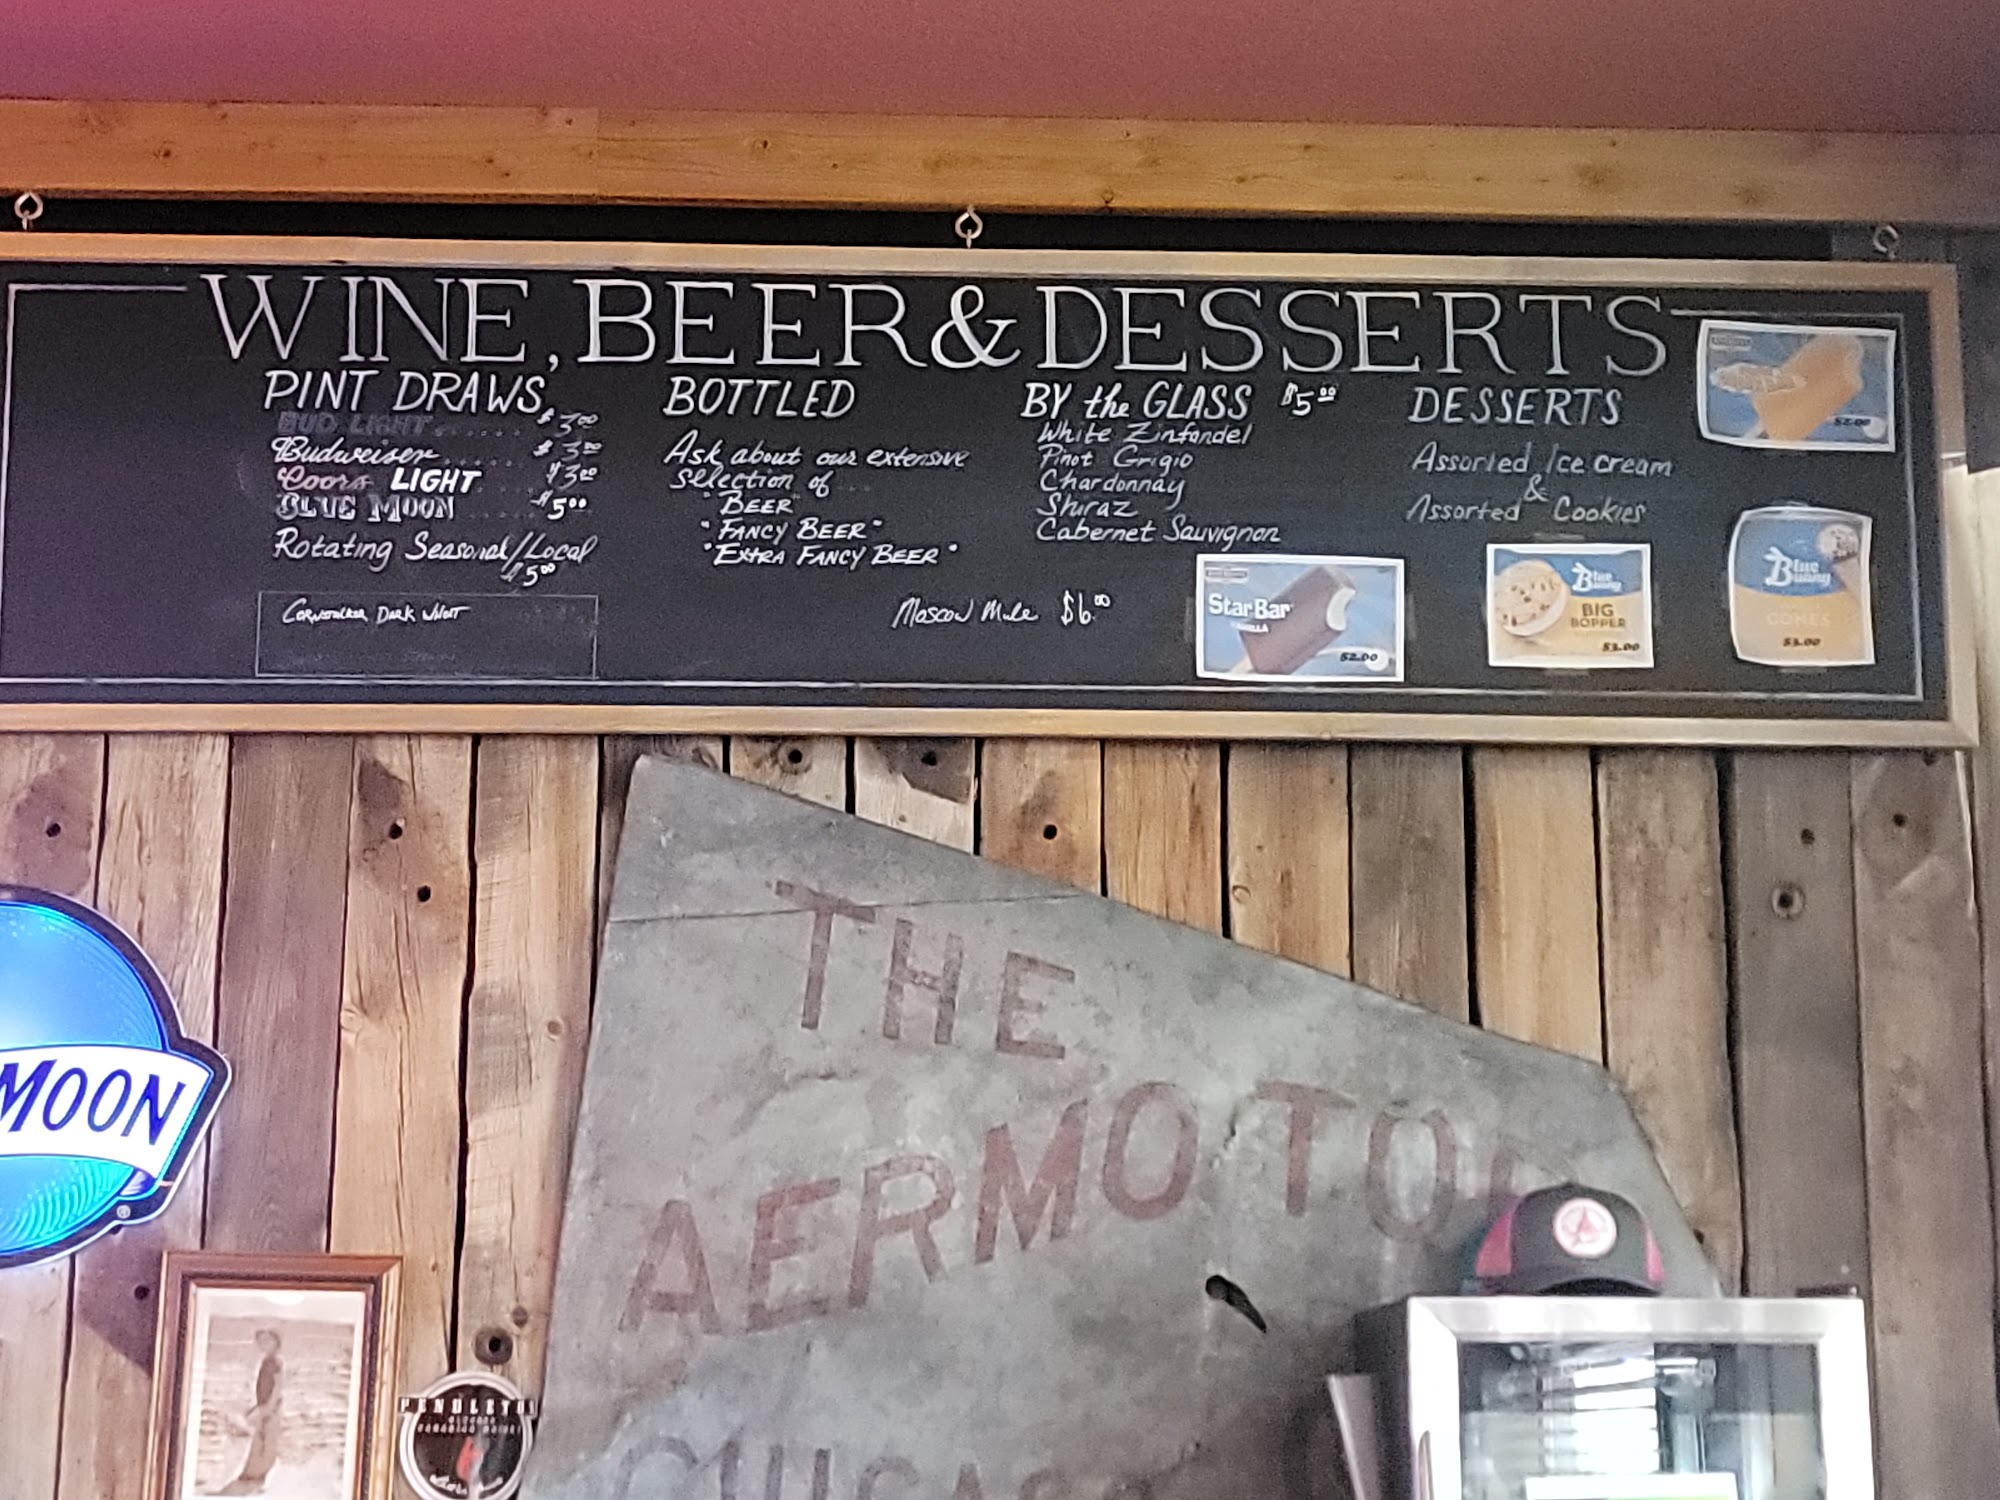 WINE, BEER & DESSERTS
PINT DRAWS
BUD LIGHT ...... $3.00
Budweiser ...... $3.00
Coors LIGHT ..... $3.00
BLUE MOON ..... $5.00
Rotating Seasonal/Local
$5.00
Dark Wheat
BOTTLED
Ask about our extensive
selection of
"BEER"
"FANCY BEER"
"EXTRA FANCY BEER"
Moscow Mule $6.00
BY the GLASS $5.00
White Zinfandel
Pinot Grigio
Chardonnay
Shiraz
Cabernet Sauvignon
DESSERTS
Assorted Ice cream
&
Assorted Cookies
$2.00
Star Bar
VANILLA
$2.00
Blue Bunny
BIG
BOPPER
$3.00
Blue
Bunny
CONES
$3.00
MOON
®
THE
AERMOTOR
CHICAGO
PENDLETON